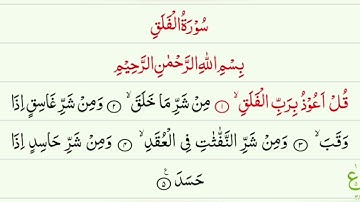 سُوْرَةُ الْفَلَقِ
بِسْمِ اللهِ الرَّحْمٰنِ الرَّحِيْمِ
قُلْ اَعُوْذُ بِرَبِّ الْفَلَقِ ۙ ۝۱ مِنْ شَرِّ مَا خَلَقَ ۙ ۝۲ وَمِنْ شَرِّ غَاسِقٍ اِذَا
وَقَبَ ۙ ۝۳ وَمِنْ شَرِّ النَّفّٰثٰتِ فِى الْعُقَدِ ۙ ۝۴ وَمِنْ شَرِّ حَاسِدٍ اِذَا
حَسَدَ ۝۵ ع